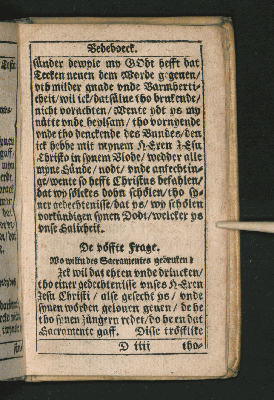 Bedeboeck.
sünder dewyle my GOdt hefft dat
Tecken neuen dem Worde gegeuen/
vth milder gnade vnde Barmherti-
cheit/ wil ick/ dat sülue tho brukende/
nicht vorachten/ Wente ydt ys my
nütte vnde heylsam/ tho vornyende
vnde tho denckende des Bundes/ den
ick hebbe mit mynem HEren JEsu
Christo in synem Blode/ wedder alle
myne Sünde/ nodt/ vnde anfechtin-
ge/ wente so hefft Christus befahlen/
dat wy sölckes dohn schölen/ tho sy-
ner gedechtenisse/ dat ys/ wy schölen
vorkündigen synen Dodt/ welcker ys
vnse Salicheit.
De vöffte Frage.
Wo wiltu des Sacramentes gebruken?
Jck wil dat ethen vnde drincken/
tho einer gedechtenisse vnses HEren
Jesu Christi/ alse gesecht ys/ vnde
synen wörden gelouen geuen/ de he
tho synen Jüngern redet/ do he en dat
Sacramente gaff. Disse tröstlike
D iiij
tho-